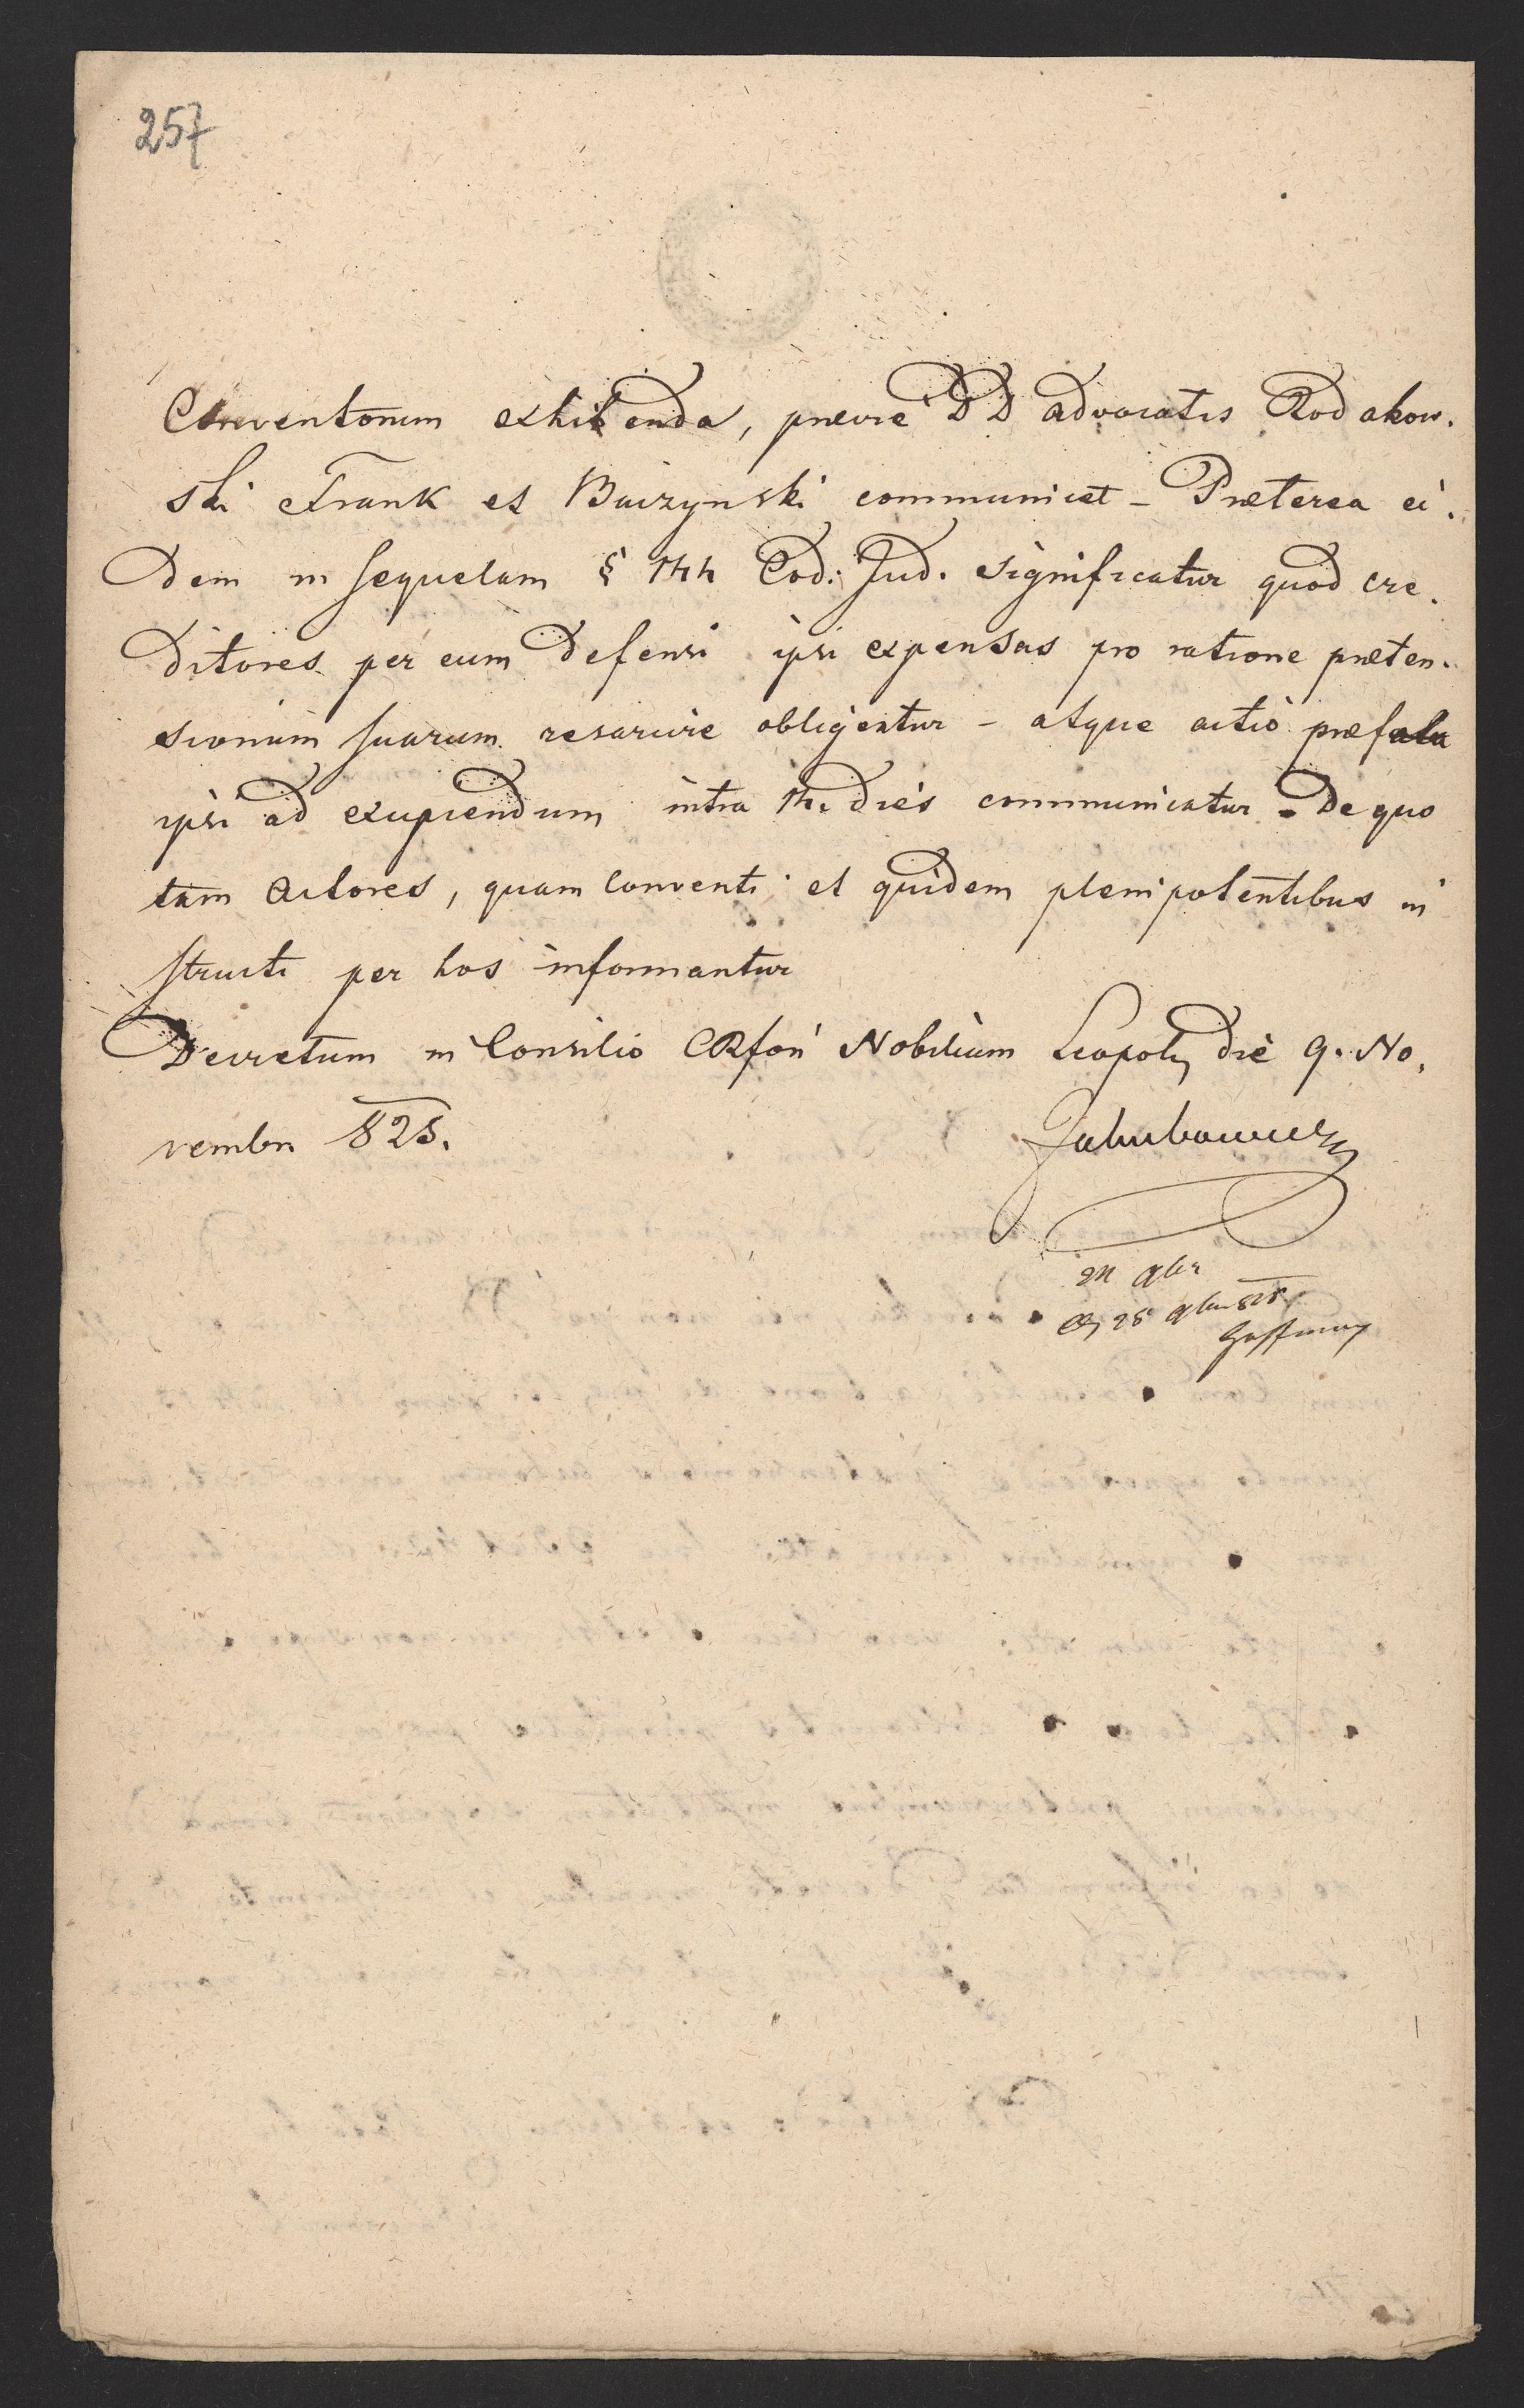 257
Conventorum exhibenda, praevie DD advocatis Rodakow.
ski Frank et Buczynski communicet - Praeterea ei.
dem in sequelam § 144 Cod: Jud. significatur quod cre.
ditores per eum defensi ipsi expensas pro ratione praeten.
sionum suarum resarcire obligentur - atque actio praefata
ipsi ad excipiendum intra 14. dies communicatur - De quo
tam Actores, quam Conventi et quidem plenipotentibus in
structi per hos informantur
Decretum in Consilio CRfori Nobilium Leopoli die 9. No.
vembri 825.
Jakubowicz
25 9br 825
Hoffmann